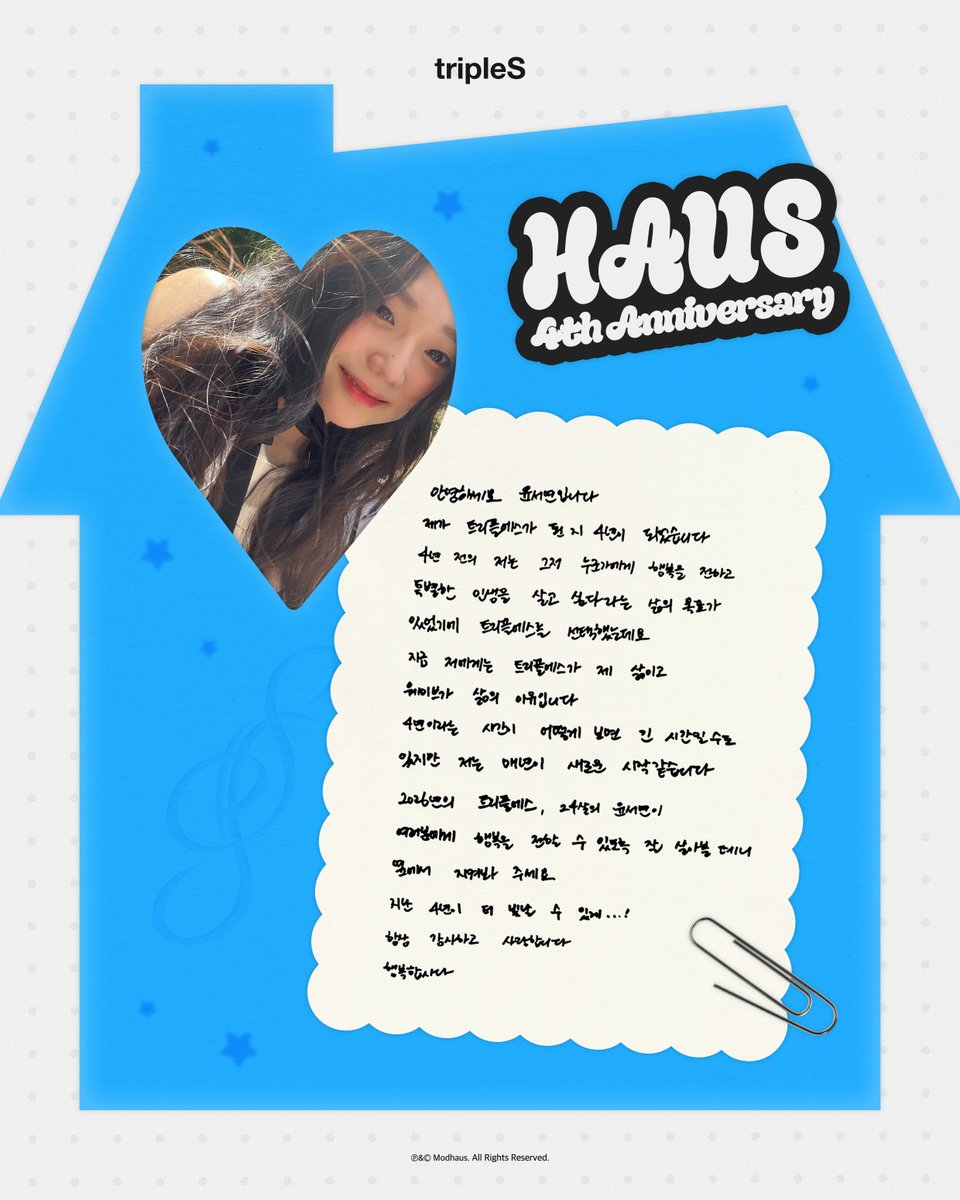 tripleS
HAUS
4th Anniversary
안녕하세요 윤서연입니다
제가 트리플에스가 된 지 4년이 되었습니다
4년 전의 저는 그저 누군가에게 행복을 전하고
특별한 인생을 살고 싶다라는 삶의 목표가
있었기에 트리플에스를 선택했는데요
지금 저에게는 트리플에스가 제 삶이고
웨이브가 삶의 이유입니다
4년이라는 시간이 어떻게 보면 긴 시간일 수도
있지만 저는 매년이 새로운 시작 같습니다
2026년의 트리플에스, 24살의 윤서연이
여러분에게 행복을 전할 수 있도록 잘 살아볼 테니
옆에서 지켜봐 주세요
지난 4년이 더 빛날 수 있게...!
항상 감사하고 사랑합니다
행복합시다
℗&© Modhaus. All Rights Reserved.